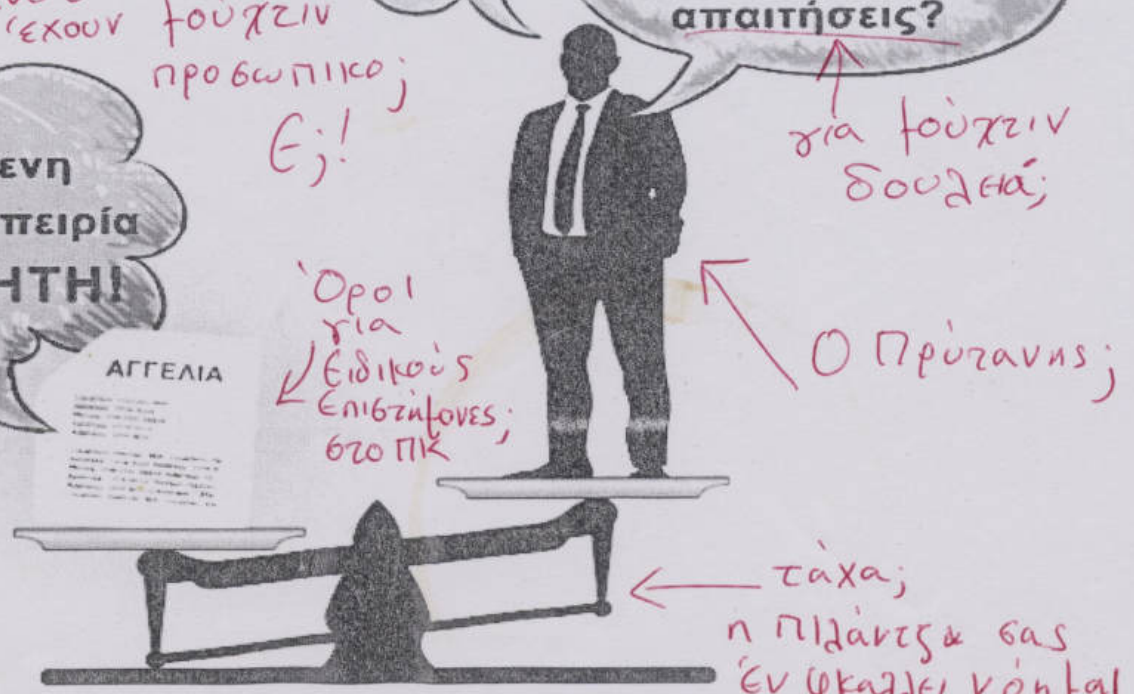 έχουν μούχτιν
προσωπικο;
Ε;!
απαιτήσεις?
για μούχτιν
δουλειά;
ενη
πειρία
ΗΤΗ!
Όροι
για
Ειδικούς
Επιστήμονες;
στο ΠΚ
Ο Πρύτανης;
ΑΓΓΕΛΙΑ
τάχα;
η πιλάντζα σας